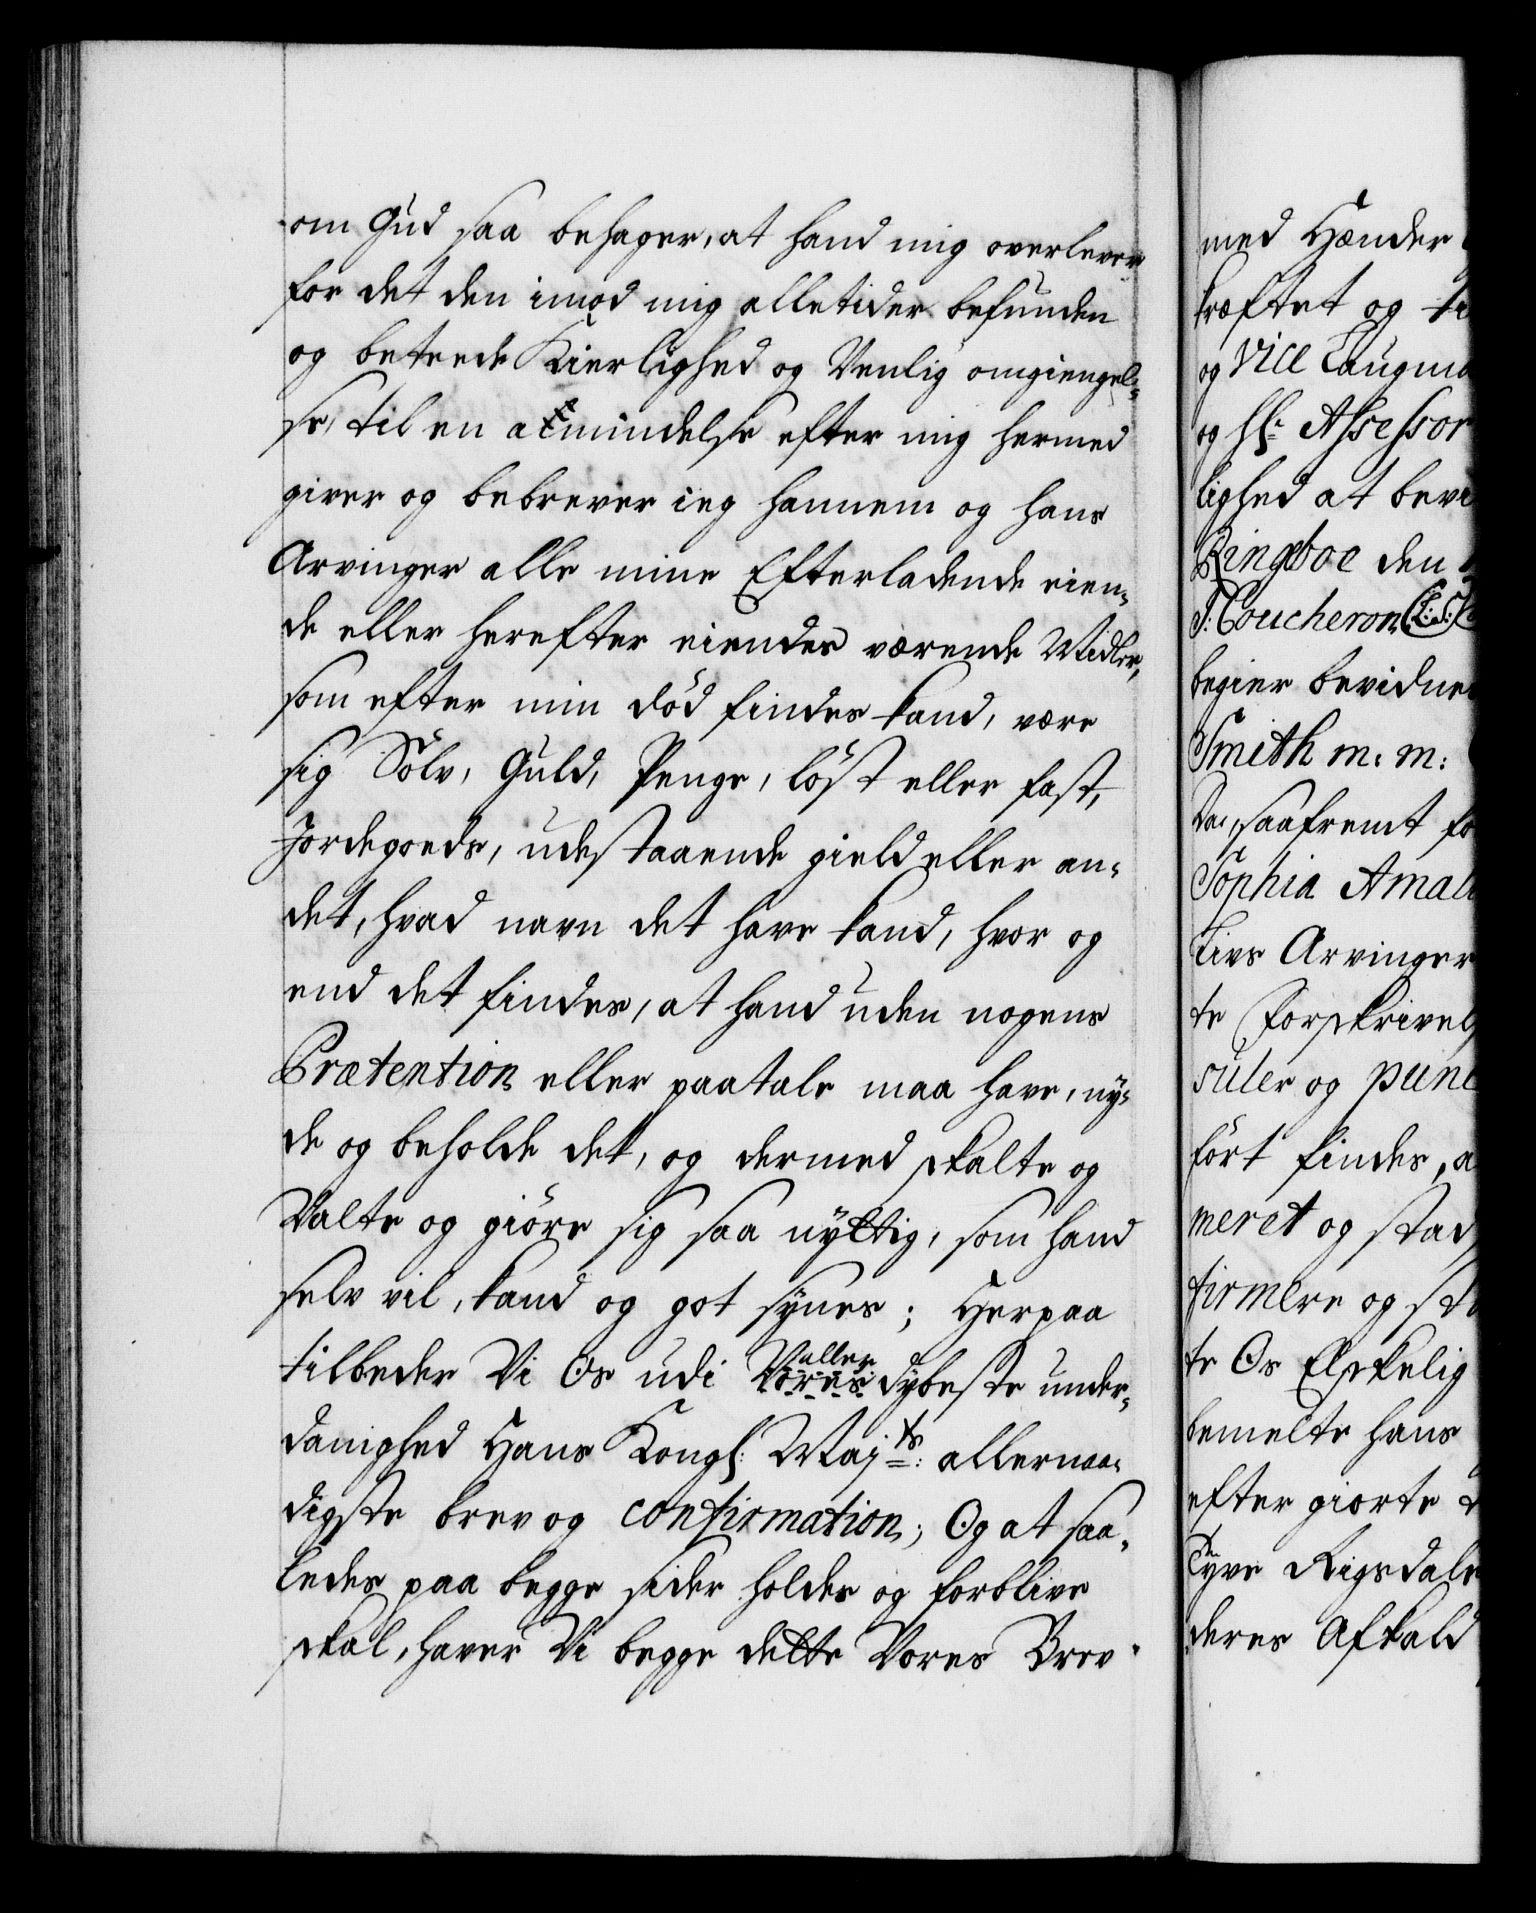 om Gud saa behager, at hand mig overlever
for det den imod mig alletider befunden
og beteede Kierlighed og Venlig omgiengel-
se, til en amindelse efter mig hermed
giver og bebrever ieg hannem og hans
Arvinger alle mine Efterladende eien-
de eller herefter eiendes værende Midler,
som efter min död findes kand, være
sig Sölv, Guld, Penge, löst eller fast,
Jordegoeds, udestaaende gield eller an-
det, hvad navn det have kand, hvor og
end det findes, at hand uden nogens
Prætention eller paatale maa have, ny-
de og beholde det, og dermed skalte og
Valte og giöre sig saa nyttig, som hand
selv vil, kand og got synes; Herpaa
tilbeder Vi Os udi Vores aller dybeste under-
danighed Hans Kongl: Maj:ts allernaa-
digste brev og confirmation; Og at saa-
ledes paa begge sider holdes og forblive
skal, haver Vi begge dette Vores Brev
med Hænder
kræftet og
og Vice Laugma
og Hr: Assessor
lighed at bevi
Ringboe den
J: Coucheron (L:S:)
begier bevidne
Smith m: m:
Da, saafremt fo
Sophia Amal
Livs Arvinger
te Forskrivel
suler og punc
fört findes, a
meret og stad
firmere og sta
te Os Elskelig
bemelte hans
efter giorte
Tyve Rigsdale
deres Afkald